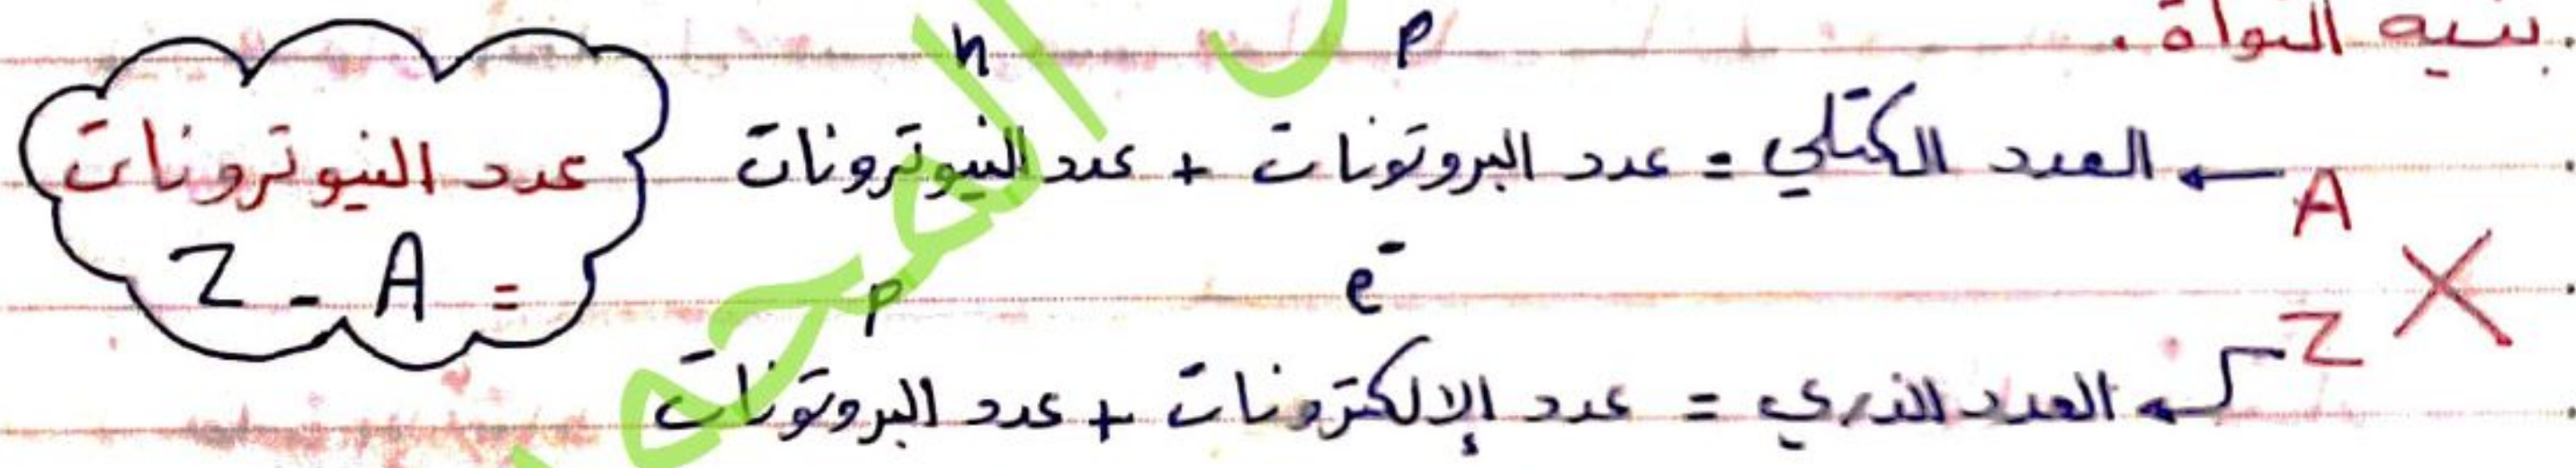 بنيه النواة .
p n
A ← العدد الكتلي = عدد البروتونات + عدد النيوترونات
X
e⁻ p
Z ← العدد الذري = عدد الإلكترونات + عدد البروتونات
عدد النيوترونات
= A - Z